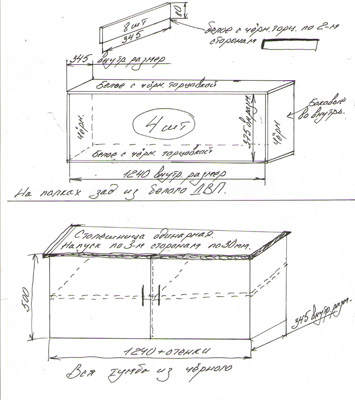 8 шт
10
345
белое с чёрн. торц. по 2-м
сторонам
345 внутр размер
Белое с чёрн торцовкой
чёрн.
4 шт
375 внутр.
чёрн
Боковые
во внутрь.
Белое с чёрн торцовкой
1240 внутр размер
На полках зад из белого ДВП.
Столешница одинарная.
Напуск по 3-м сторонам по 30мм.
500
345 внутр разм.
1240 + стенки
Вся тумба из чёрного